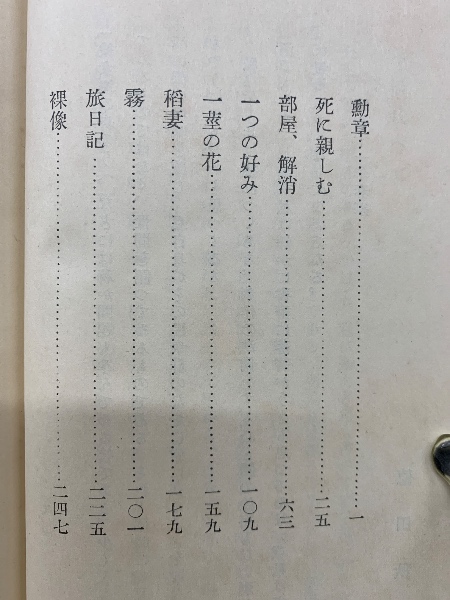 勳章……………一
死に親しむ……………二五
部屋、解消……………六三
一つの好み……………一〇九
一莖の花……………一五九
稻妻……………一七九
霧……………二〇一
旅日記……………二二五
裸像……………二四七